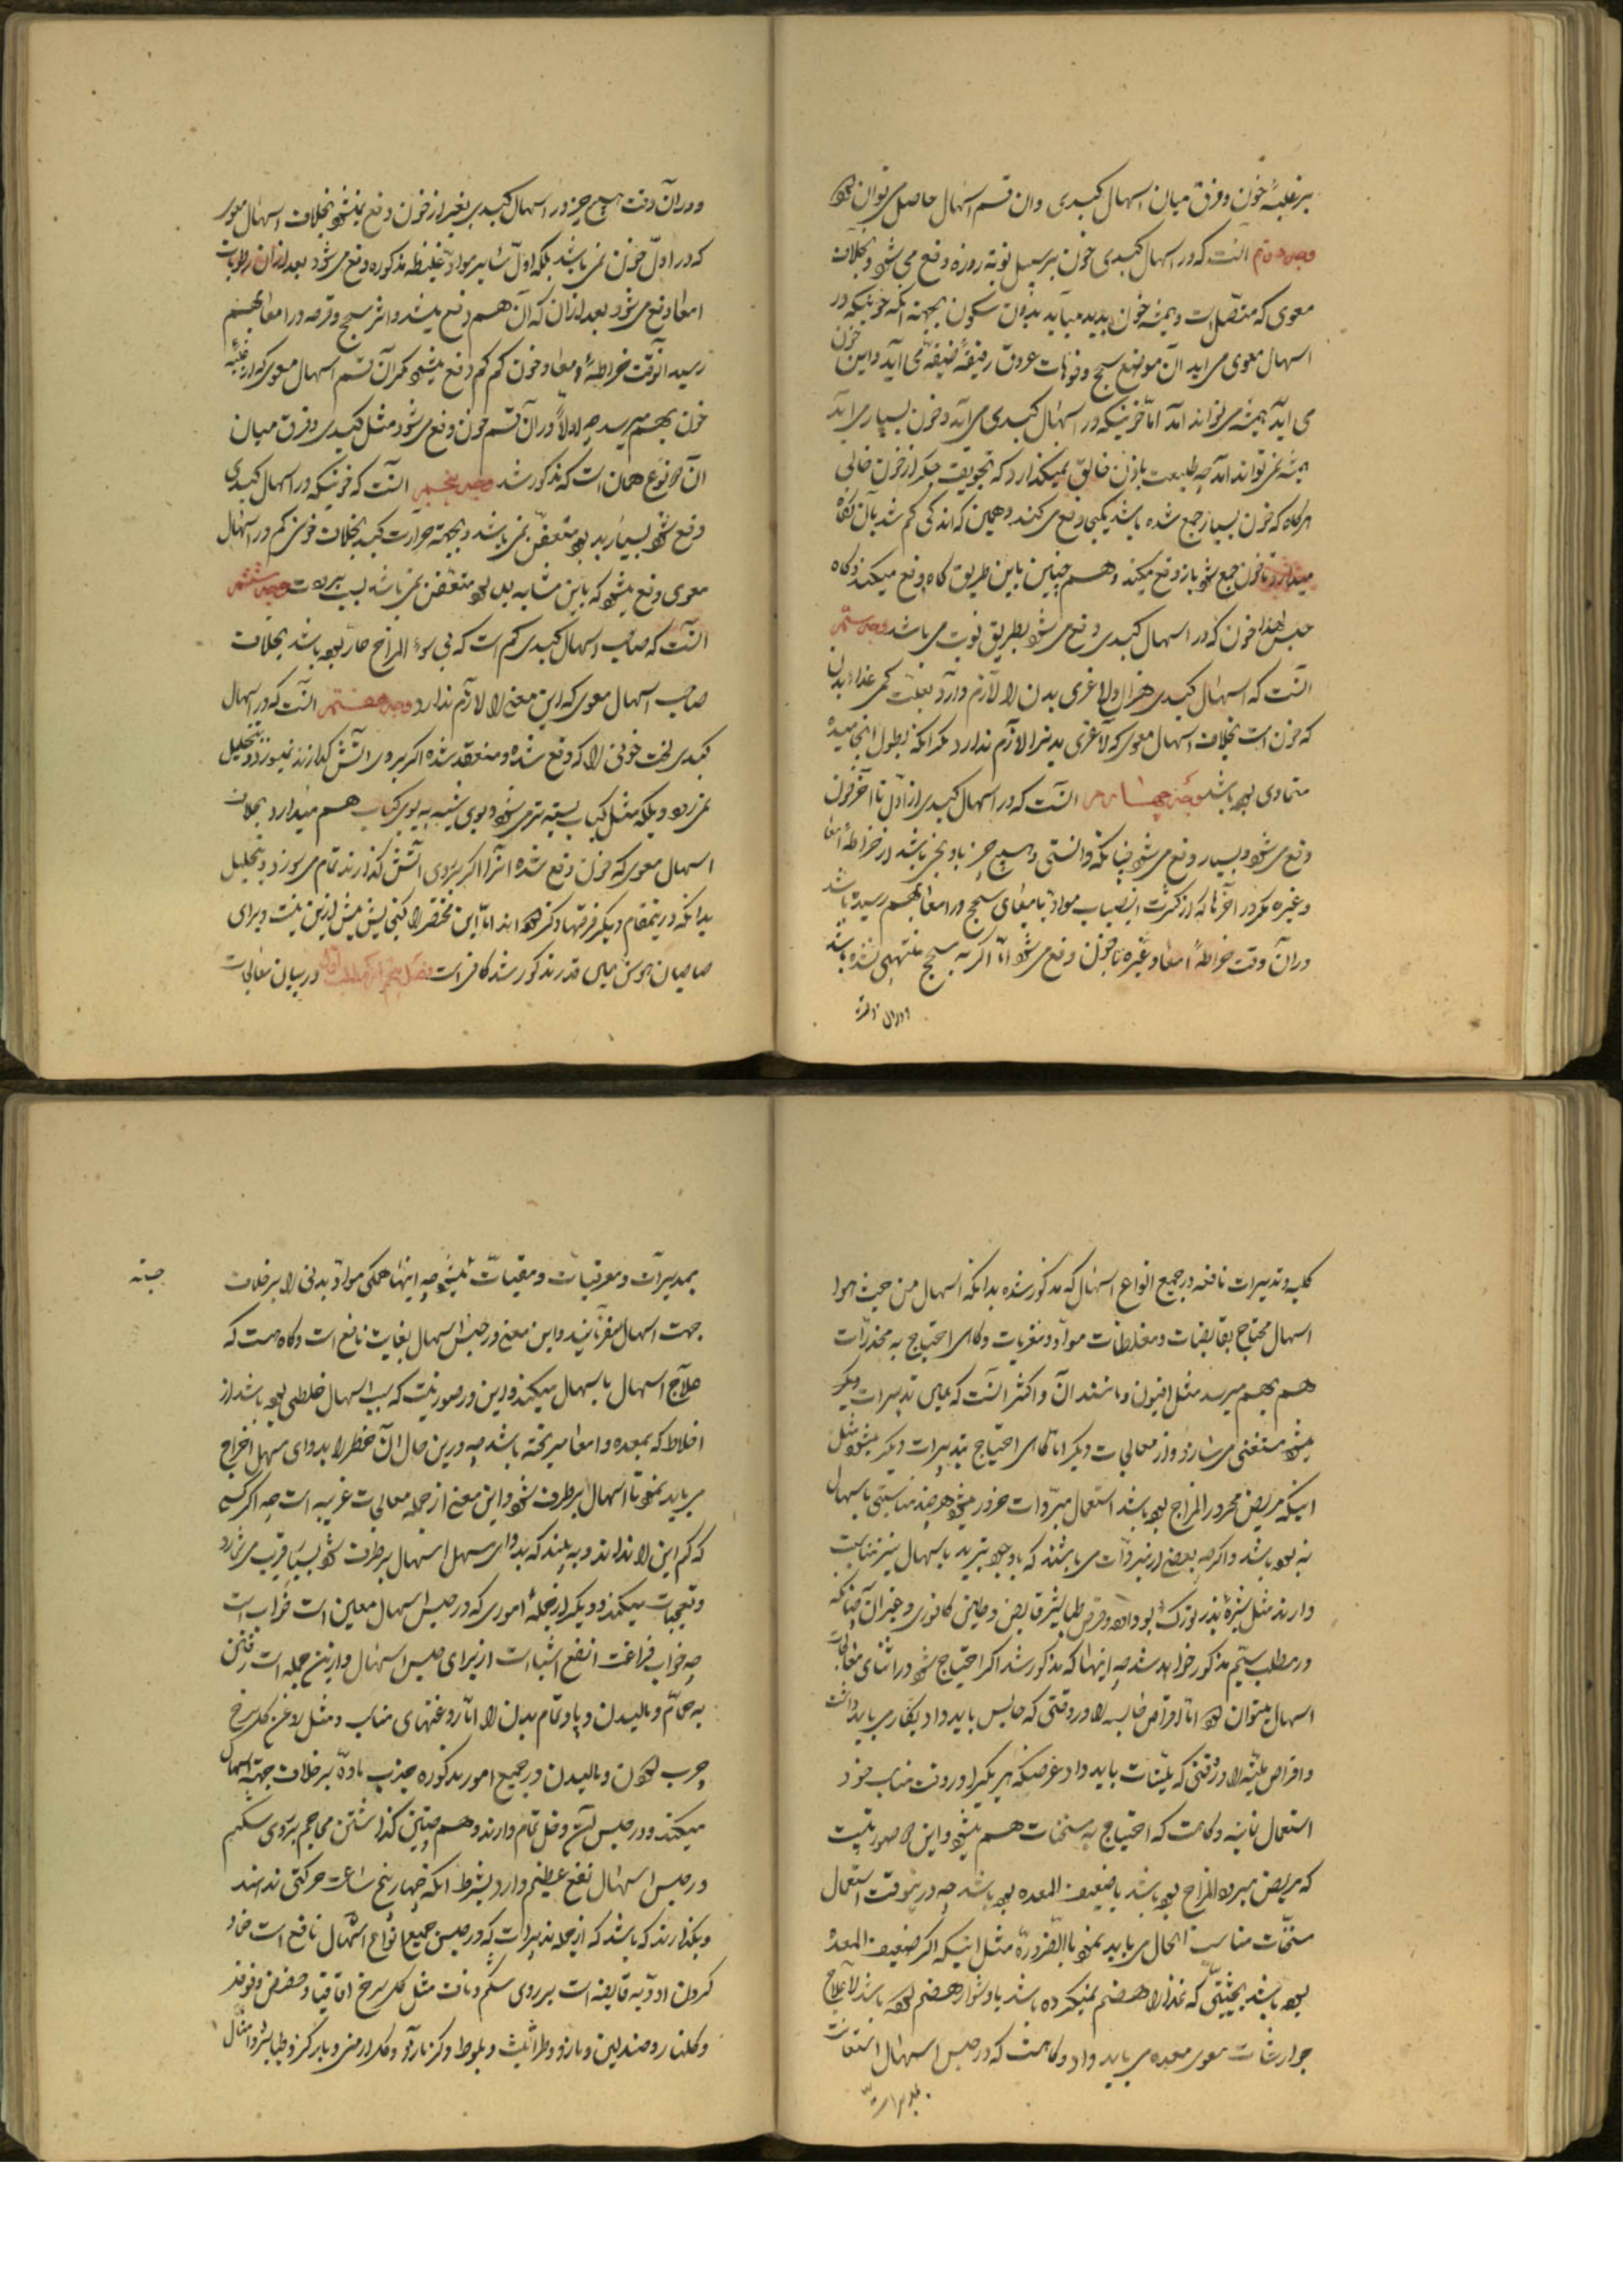 بر غلبهٔ خون و فرق میان اسهال کبدی و ان قسم اسهال حاصل می توان نمود
وجه دوم آنست که در اسهال کبدی خون بر سبیل نوبه روزه دفع می شود و بخلاف
معوی که متصل است و همیشه خون پدید میآید بدون سکون بجهته آنکه خونیکه در
اسهال معوی می اید از موضع سحج و فوهات عروق رقیقه ضیقه می آید و این خون
می آید همیشه می تواند امد اما خونیکه در اسهال کبدی می آید و خون بسیار می آید
همیشه نمی تواند آمد چه طبیعت باذن خالق نمیگذارد که تجویف جگر از خون خالی
هرگاه که خون بسیار جمع شده باشد یکجا دفع می کند و همین که اندکی کم شد بآن نگاه
میدارد تا خون جمع شود باز دفع میکند و هم چنین باین طریق گاه دفع میکند و گاه
حبس لهذا خون که در اسهال کبدی دفع می شود بطریق نوبت می باشد وجه سیم
آنست که اسهال کبدی هزال و لاغری بدن را لازم دارد بعلت کمی غذاء بدن
که خون است بخلاف اسهال معوی که لاغری بدنرا لازم ندارد مگر آنکه بطول انجامیده
متمادی بوده باشد وجه چهارم آنست که در اسهال کبدی از اول تا آخر خون
دفع می شود و بسیار دفع می شود چنانکه دانستی و هیچ چیز باو نمی باشد از خراطهٔ امعا
و غیره مگر در آخرها که از کثرت انصباب مواد بامعای سحج در امعا بهم رسیده باشد
در آن وقت خراطهٔ امعا و غیره با خون دفع می شود اما اگر به سحج منتهی نشده باشد
و در آن وقت هیچ چیز در اسهال کبدی بغیر از خون دفع نمیشود بخلاف اسهال معوی
که در اول خون نمی باشد بلکه اول تاثیر مواد غلیظه مذکوره دفع می شود بعد از ان رطوبات
امعا دفع می شود بعد از ان که آن هم دفع میشد و اثر سحج و قرحه در امعا بهم
رسید آنوقت خراطهٔ امعا و خون کم کم دفع میشود مگر آن قسم اسهال معوی که از غلبه
خون بهم میرسد چه اولا در آن قسم خون دفع می شود مثل کبدی و فرق میان
آن دو نوع همان است که مذکور شد وجه پنجم آنست که خونیکه در اسهال کبدی
دفع شود بسیار بد بو متعفن می باشد و بجهته حرارت کبد بخلاف خونی کم در اسهال
معوی دفع میشود که باین مشابه بدبو متعفن نمی باشد بسبب برودت وجه ششم
آنست که صاحب اسهال کبدی کم است که بی سوء المزاج حار بوده باشد بخلاف
صاحب اسهال معوی که این معنی را لازم ندارد وجه هفتم آنست که در اسهال
کبدی لخت خونی را که دفع شده و منعقد شده اگر بروی آتش گذارند نمیسوزد و بتحلیل
نمی رود و بلکه مثل کباب بسته تر می شود و بوی شبیه به بوی کباب هم میدارد بخلاف
اسهال معوی که خون دفع شده انرا اگر بروی آتش گذارند تمام می سوزد و بتحلیل
بدانکه در اینمقام دیگر فرقها ذکر کرده اند اما این مختصر را گنجایش بیش ازین نیست و برای
صاحبان هوش همین قدر مذکور شد کافی است در بیان معالجات
کلیه و تدبیرات نافعه در جمیع انواع اسهال که مذکور شده بدانکه اسهال من حیث هو
اسهال محتاج بقابضات و مغلظات مواد و مغریات و گاهی احتیاج به مخدرات
هم بهم میرسد مثل افیون و مانند آن و اکثر آنست که همین تدبیرات دیگر
میشود مستغنی می سازد و از معالجات دیگر اما گاهی احتیاج بتدبیرات دیگر میشود مثل
اینکه مریض محرور المزاج بوده باشد استعمال مبردات ضرور میشود هرچند مناسبتی باسهال
نبوده باشد و اگرچه بعضی از مبردات می باشند که با وجود تبرید باسهال نیز مناسبت
دارند مثل شیرهٔ بذر بزرک بو داده و قرص طباشیر قابض و حابس کافوری و غیر آن چنانکه
در مطلب سیم مذکور خواهد شد چه اینها که مذکور شد اگر احتیاج شود در اثنای معالجات
اسهال میتوان داد اما اقراص حابسه را در وقتی که حابس باید داد بکار می باید داشت
و اقراص ملینه را در وقتی که ملینات باید داد غرضیکه هر یک را در وقت مناسب خود
استعمال نمایند و گاهست که احتیاج به مسخنات هم میشود و این در صورتیست
که مریض مبرود المزاج بوده باشد یا ضعیف المعده بوده باشد چه در ینوقت استعمال
مسخنات مناسب الحال می باید نمود بالضروره مثل اینکه اگر ضعیف المعده
بوده باشد بحیثیتی که غذا را هضم نمیکرده باشد یا دشوار هضم بوده باشد لاعلاج
جوارشات مقوی معده می باید داد و گاهست که در حبس اسهال استعانت
بمدرات و معرقات و مقیات میشود چه اینها همگی مواد بدنی را بر خلاف
جهت اسهال میفرمایند و این معنی در حبس اسهال بغایت نافع است و گاه هست که
علاج اسهال باسهال میکنند و این در صورتیست که سبب اسهال خلطی بوده باشد از
اخلاط که بمعده و امعا میریخته باشد چه درین حال آن خلط را بدوای مسهل اخراج
می باید نمود تا اسهال برطرف شود و این معنی از جمله معالجات غریبه است چه اگر کسی
که حکم این را نداند و به بیند که بدوای مسهل اسهال برطرف شود بسیار غریب می شمارد
و تعجبات میکند و دیگر از جملهٔ اموری که در حبس اسهال معین است خواب است
چه خواب فراغت انفع اشیاست از برای حبس اسهال و ازین جمله است رفتن
به حمام و مالیدن و پا و تمام بدن را اما روغنهای مناسب و مثل روغن گل سرخ
چرب کردن و مالیدن و جمیع امور مذکوره جذب ماده بر خلاف جهة اسهال
میکند و در حبس آن دخل تمام دارند و هم چنین گذاشتن محاجم بروی شکم
در حبس اسهال نفع عظیم دارد بشرط آنکه چهار پنج ساعت حرکتی ندهند
و بگذارند که باشد که از جمله تدبیرات که در حبس جمیع انواع اسهال نافع است ضماد
کردن ادویه قابضه است بر روی شکم و ناف مثل گل سرخ و اقاقیا و حضض و فوفل
و گلنار و صندلین و مازو و طراثیث و بلوط و کزمازو و گل ارمنی و طباشیر و امثال